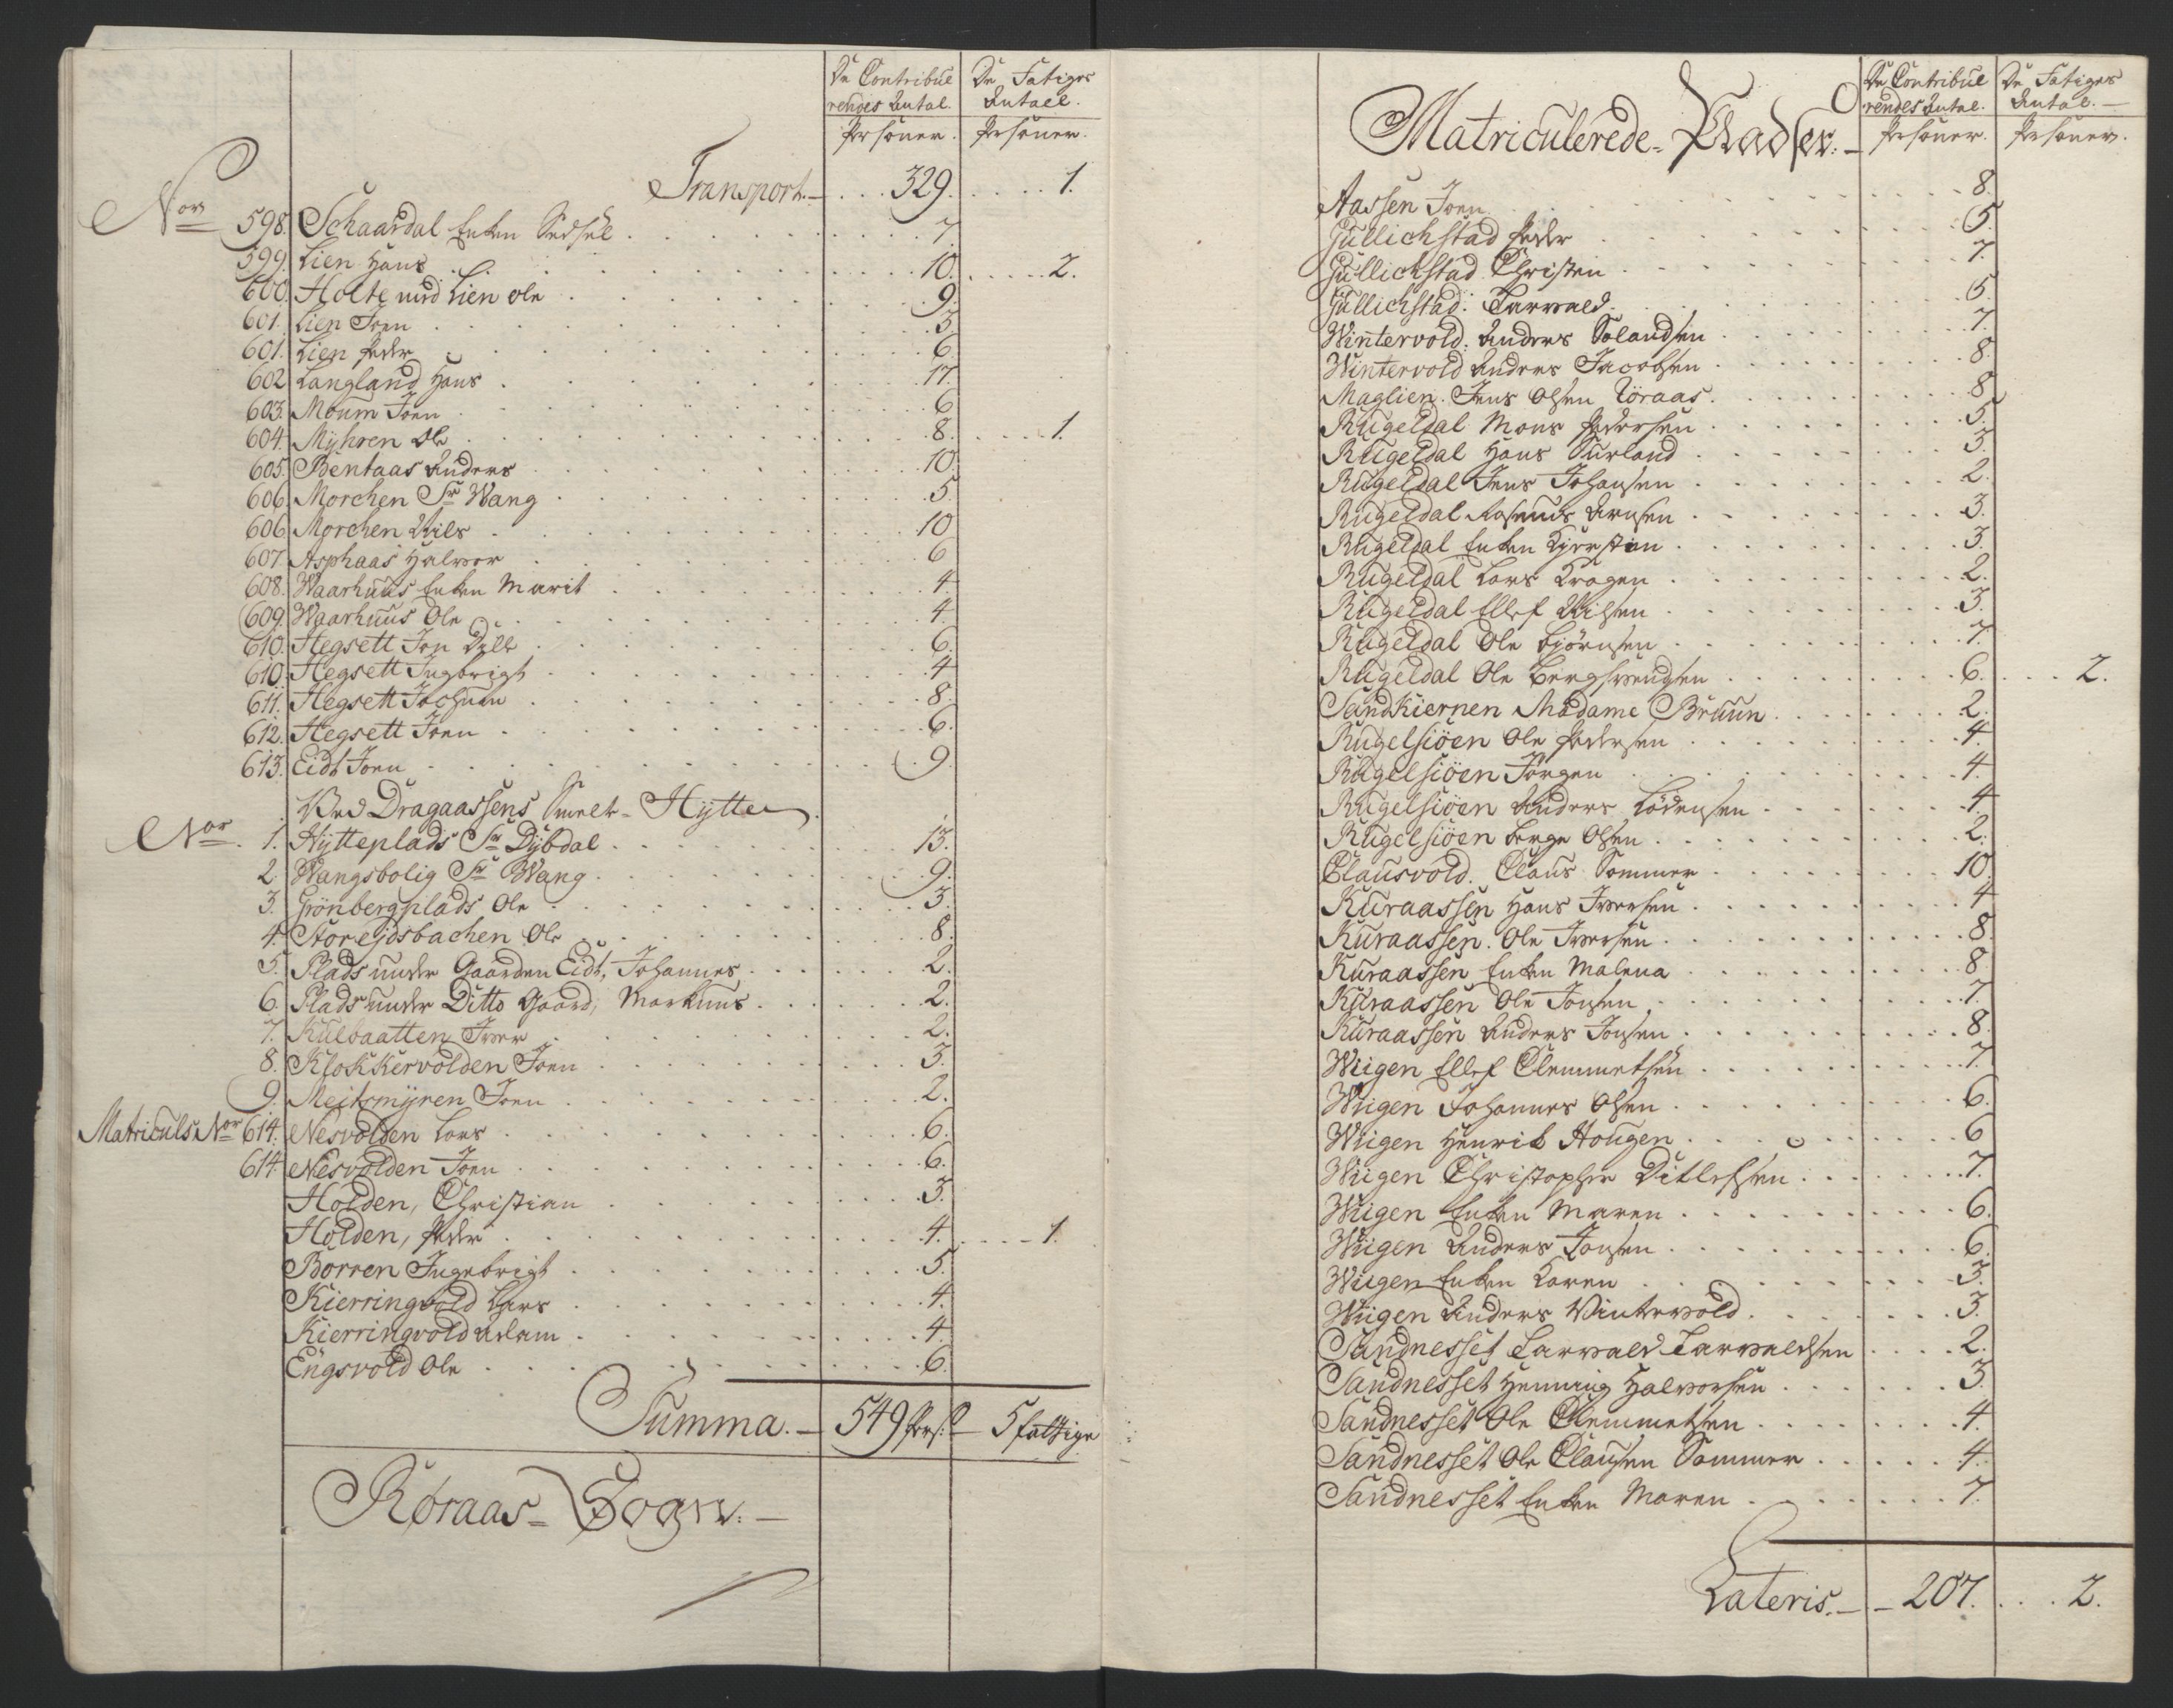 De Contribue De Fatiges
rendes Antal. Antall.
Personer. Personer.
Transport.— 329. 1.
Nor 598. Schaardal Enken Sedsel 7.
599. Lien Hans 10. 2.
600. Holte med Lien Ole 9.
601. Lien Joen 3.
601. Lien Peder 6.
602 Langland Hans 17.
603. Moum Joen 6.
604. Myhren Ole 8. 1.
605. Bentaas Anders 10.
606. Morchen Sr Wang 5.
606. Morchen Nils 10
607 Asphaas Halvor 6
608. Waarhuus Enken Marit 4.
609. Waarhuus Ole 4.
610. Hegsett Jon 6.
610. Hegsett Ingbrigt 4
611. Hegsett Jochum 8.
612. Hegsett Joen 6.
613. Eidt Joen 9.
Ved Dragaassens Smelt-Hytte
Nor 1. Hytteplads Sr Dybdal 13.
2. Wangsbolig Sr Wang 9.
3. Grönbergplads Ole 3.
4. Storejdsbachen Ole 8.
5. Plads under Gaarden Eidt, Johannes 2.
6. Plads under Ditto Gaard, Markuus 2.
7. Kulbaatten Iver 2.
8. Klokkervolden Joen 3.
9. Meitsmyren Joen 2.
Matriculs Nor 614. Nesvolden Lars 6.
614 Nesvolden Joen 6.
Holden, Christian 3.
Holden, Peder 4. 1.
Borren Ingebrigt 5.
Kierringvold Lars 4.
Kierringvold Adam 4.
Engsvold Ole 6.
Summa.— 549 Pers:— 5 fattige
Røraas-Sogn.—
De Contribue De Fatiges
rendes Antal. Antal.—
Matriculerede-Pladser.— Personer. Personer.
Aassen Joen 8.
Gullichstad Peder 5.
Gullichstad Christen 7.
Gullichstad. Tarvald 5.
Wintervold. Anders 7.
Wintervold Anders Jacobsen 8.
Maglien. Jens Olsen 8
Rugeldal Mons Pedersen 5.
Rugeldal Hans 3.
Rugeldal Jens Johansen 2.
Rugeldal Rasmus Arnsen 3.
Rugeldal Enken Kjerstien 3.
Rugeldal Lars Kragen 2.
Rugeldal Ellef Nilsen 3.
Rugeldal Ole Biörnsen 7.
Rugeldal Ole Bergsvendsen 6. 2.
Sandkiernen Madame Bruun 2.
Rugelsiöen Ole Pedersen 4.
Rugelsiöen Jörgen 4.
Rugelsiöen Anders 4
Rugelsiöen Berge Olsen 2.
Clausvold. Claus Sommer 10.
Kuraassen Hans Iversen 4
Kuraassen. Ole Iversen 8.
Kuraassen Enken Malena 8
Kuraassen Ole Jonsen 7.
Kuraassen Anders Jonsen 8.
Wiigen Ellef Clemmetsen 7.
Wiigen Johannes Olsen 6.
Wiigen Henrik Hougen 6
Wiigen Christopher Ditlefsen 7.
Wiigen Enken Maren 6.
Wiigen Anders Jonsen 6.
Wiigen Enken Karen 3.
Wiigen Anders Vintervold 3.
Sandnesset Tarvald Tarvaldsen 2.
Sandnesset Henning Halvorsen 3.
Sandnesset Ole Clemmetsen 4.
Sandnesset Ole Clausen Sommer 4.
Sandnesset Enken Maren 7.
Lateris.— 207. 2.